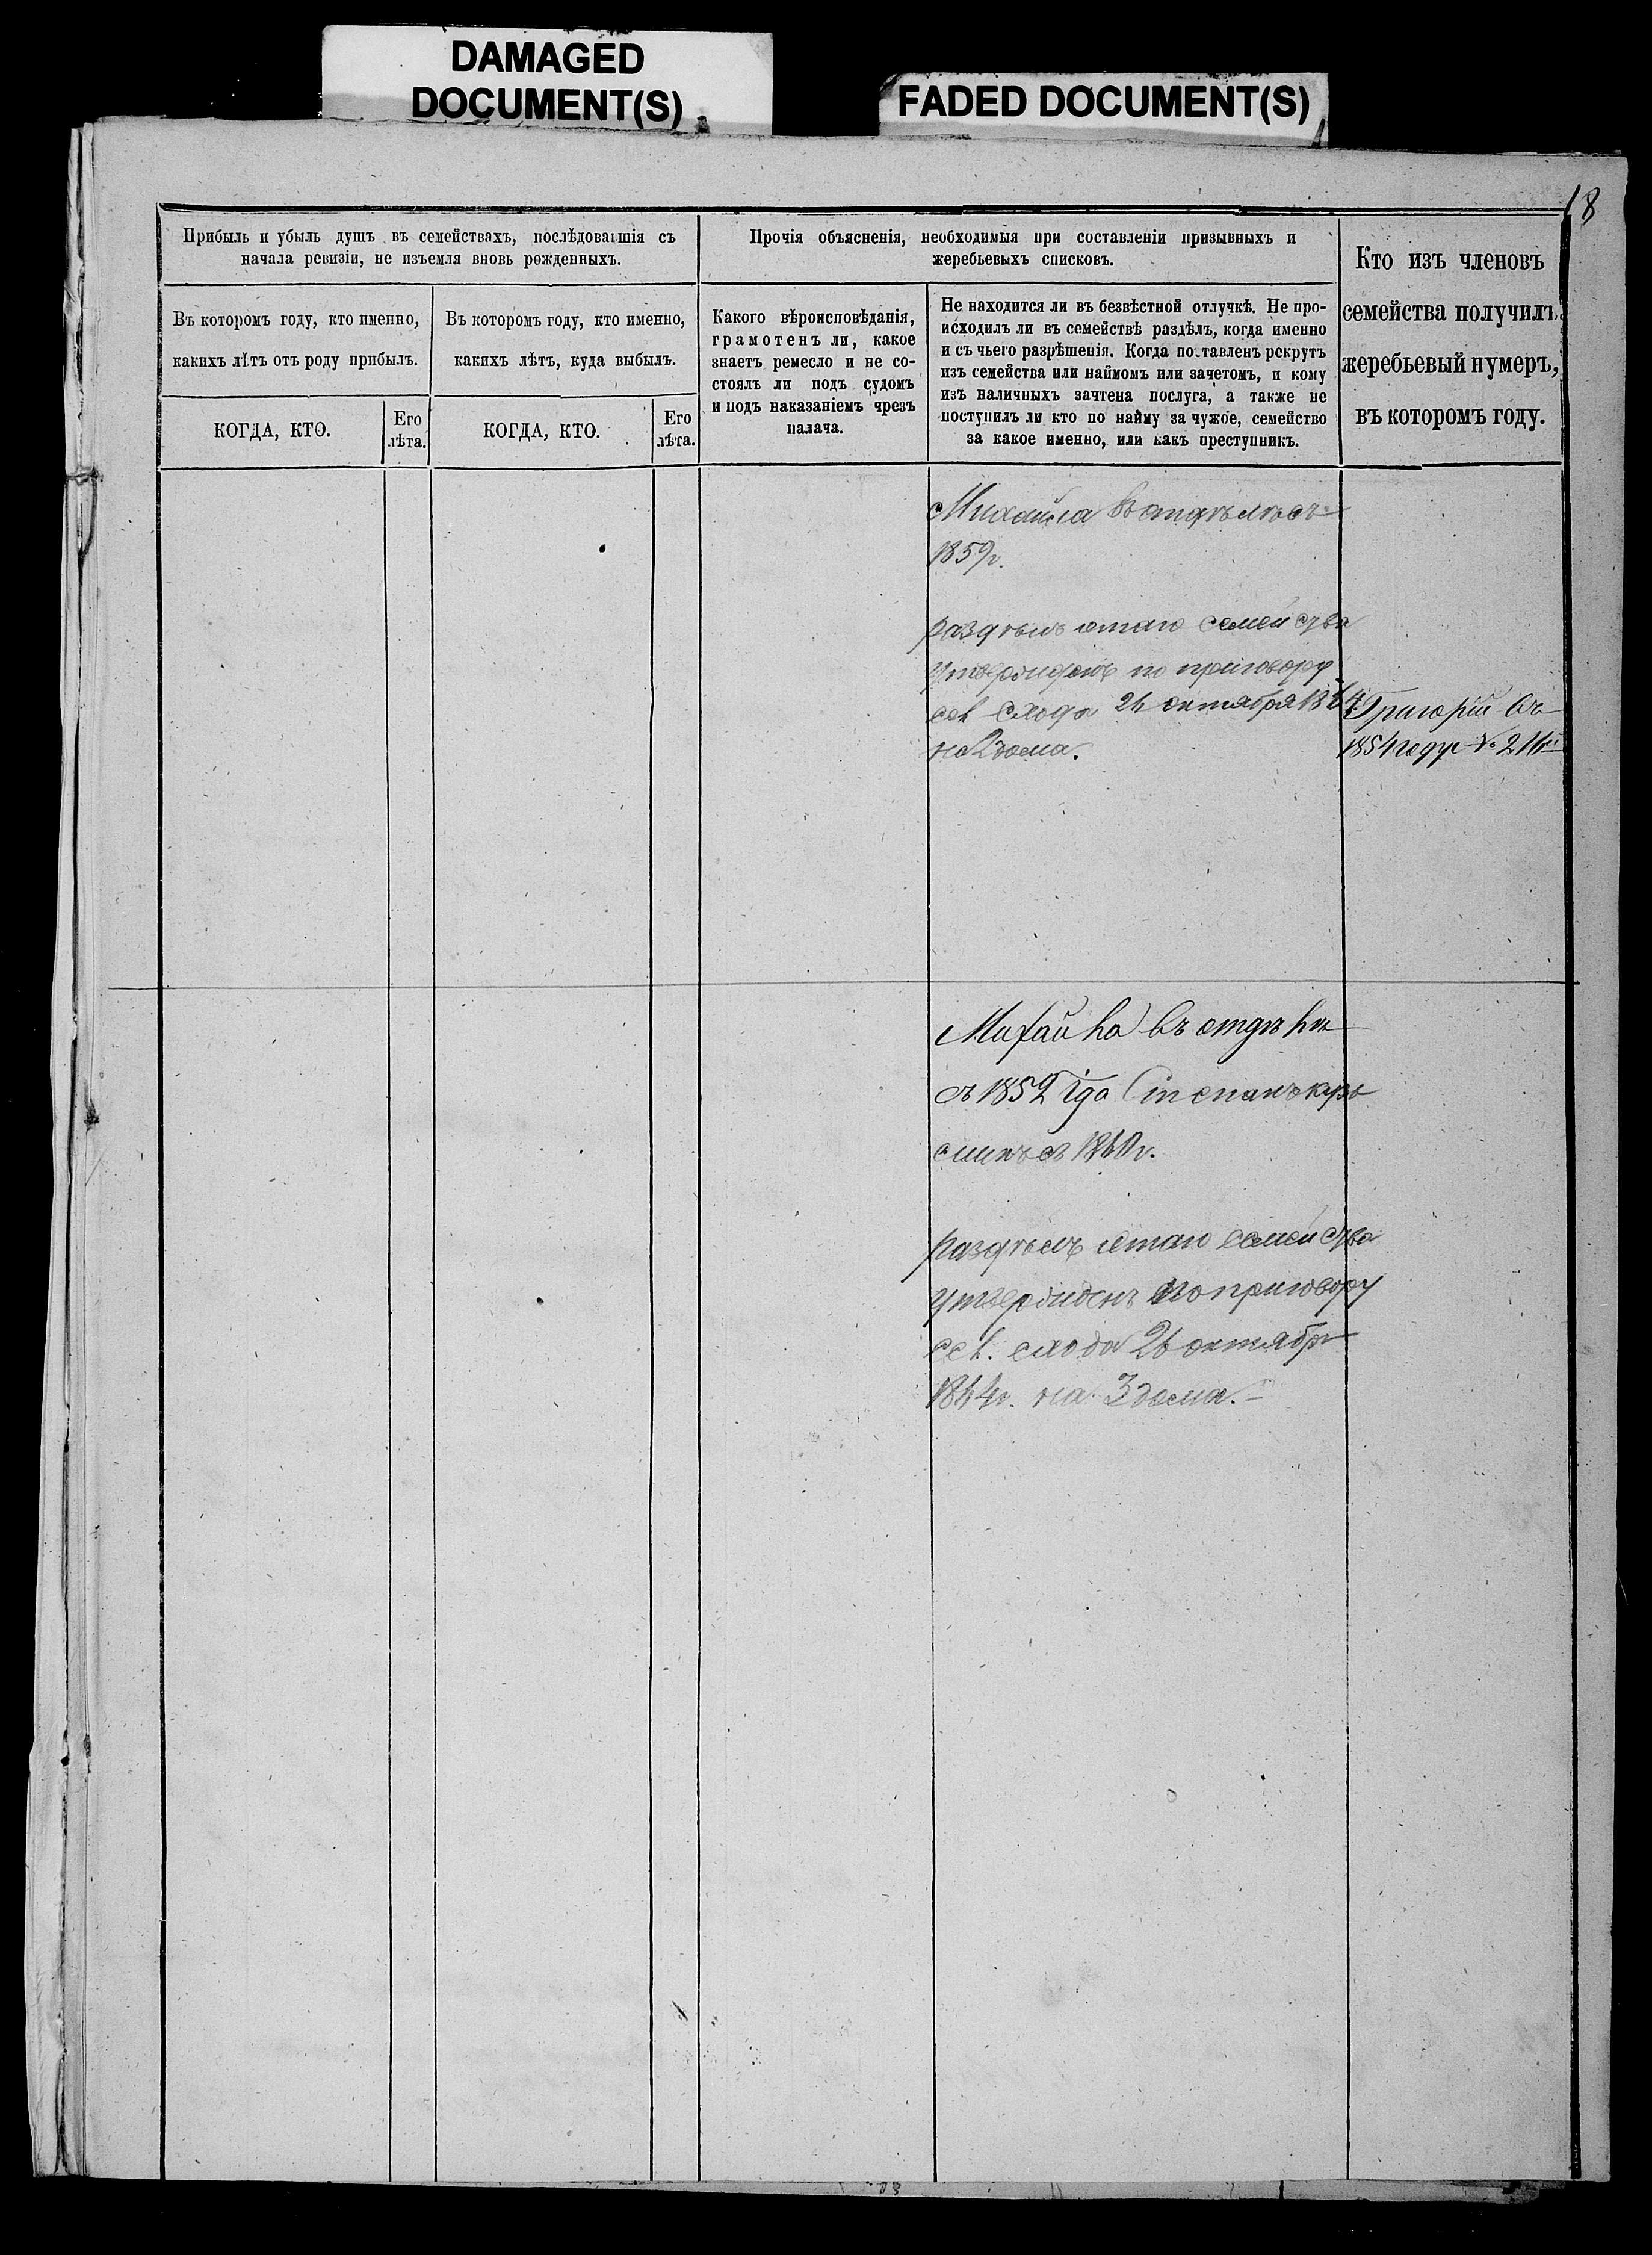 DAMAGED
DOCUMENT(S)
FADED DOCUMENT(S)
18
Прибыль и убыль душъ въ семействахъ, послѣдовавшія съ
начала ревизіи, не изъемля вновь рожденныхъ.
Прочія объясненія, необходимыя при составленіи призывныхъ и
жеребьевыхъ списковъ.
Кто изъ членовъ
семейства получилъ
жеребьевый нумеръ,
въ которомъ году.
Въ которомъ году, кто именно,
какихъ лѣтъ отъ роду прибылъ.
Въ которомъ году, кто именно,
какихъ лѣтъ, куда выбылъ.
Какого вѣроисповѣданія,
грамотенъ ли, какое
знаетъ ремесло и не со-
стоялъ ли подъ судомъ
и подъ наказаніемъ чрезъ
палача.
Не находится ли въ безвѣстной отлучкѣ. Не про-
исходилъ ли въ семействѣ раздѣлъ, когда именно
и съ чьего разрѣшенія. Когда поставленъ рекрутъ
изъ семейства или наймомъ или зачетомъ, и кому
изъ наличныхъ зачтена послуга, а также не
поступилъ ли кто по найму за чужое, семейство
за какое именно, или какъ преступникъ.
КОГДА, КТО.
Его
лѣта.
КОГДА, КТО.
Его
лѣта.
Михайла въ отдѣлѣ съ
1859г.
раздѣлъ этаго семейства
утвержденъ по приговору
сел схода 26 октября 1864
на 2 дома.
Григорій въ
1854 году №
Михайла въ отдѣлѣ
съ 1852 года Степанъ
съ 1860г.
раздѣлъ этаго семейства
утвержденъ по приговору
сел. схода 26 октября
1864г. на 3 дома.